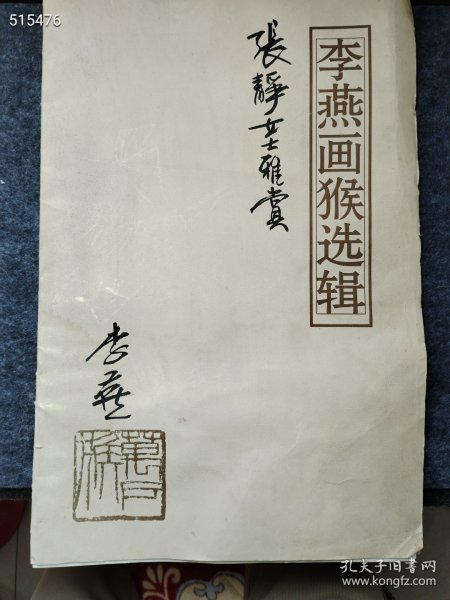 515476
李燕画猴选辑
張靜女士雅賞
李燕
孔夫子旧书网
www.kongfz.com